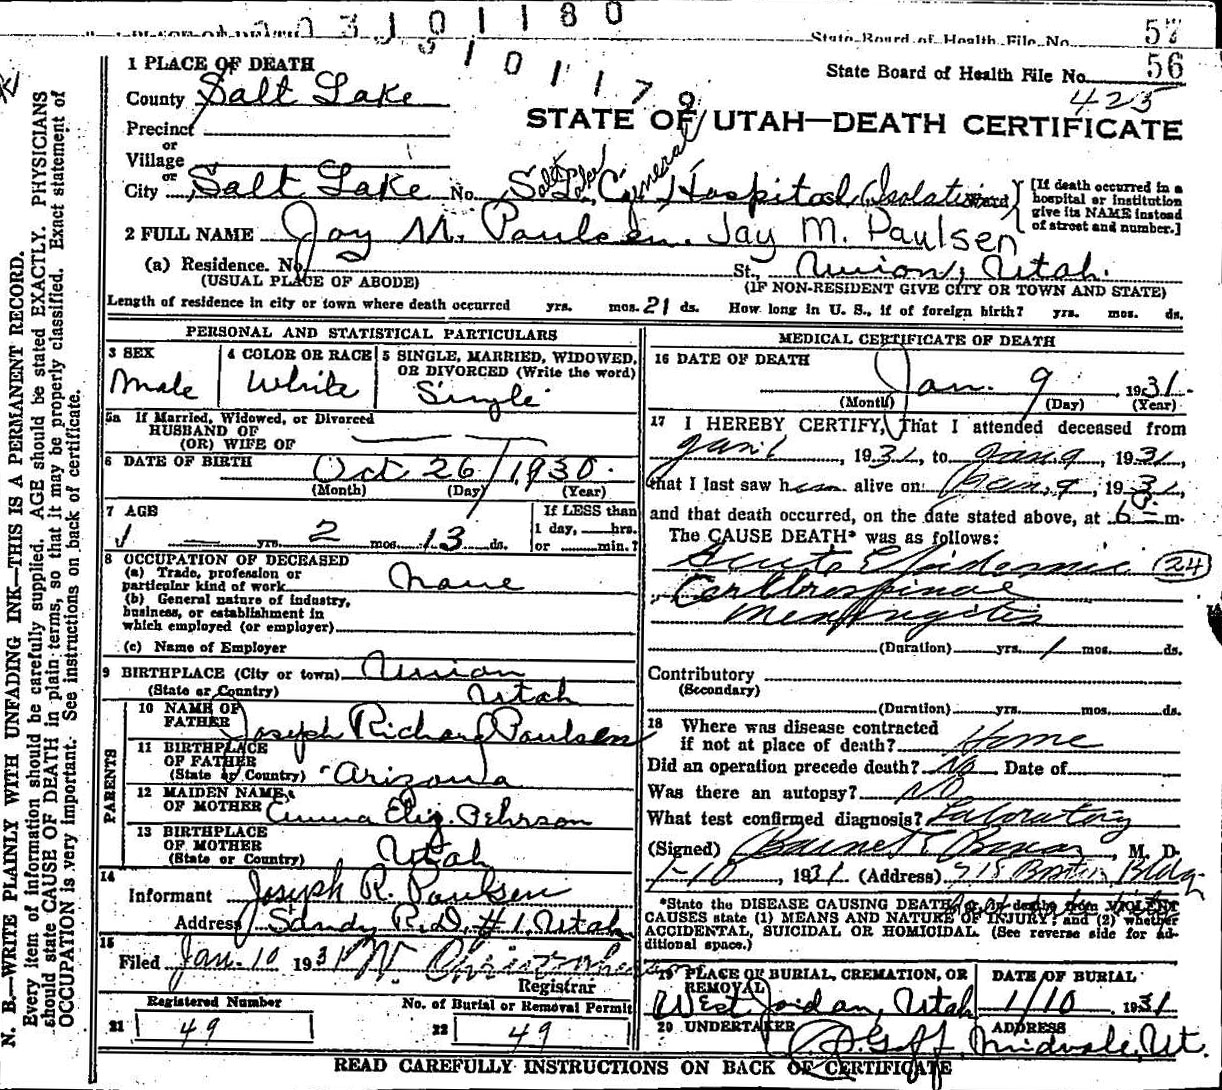 0 3 1 0 1 1 8 0
1 PLACE OF DEATH
State Board of Health File No. 57
3 1 0 1 1 7 9
1 PLACE OF DEATH
State Board of Health File No. 56
County Salt Lake
425
STATE OF UTAH—DEATH CERTIFICATE
Precinct
or
Village
or
City Salt Lake No. Salt Lake General Hospital, Isolation Ward
[If death occurred in a hospital or institution give its NAME instead of street and number.]
2 FULL NAME Jay M. Paulsen. Jay M. Paulsen
(a) Residence. No. St., Union, Utah.
(USUAL PLACE OF ABODE) (IF NON-RESIDENT GIVE CITY OR TOWN AND STATE)
Length of residence in city or town where death occurred yrs. mos. 21 ds. How long in U. S., if of foreign birth? yrs. mos. ds.
PERSONAL AND STATISTICAL PARTICULARS
3 SEX 4 COLOR OR RACE 5 SINGLE, MARRIED, WIDOWED, OR DIVORCED (Write the word)
Male White Single
5a If Married, Widowed, or Divorced
HUSBAND OF
(OR) WIFE OF
6 DATE OF BIRTH Oct 26, 1930.
(Month) (Day) (Year)
7 AGE If LESS than
— yrs. 2 mos. 13 ds. 1 day, hrs.
or min.?
8 OCCUPATION OF DECEASED
(a) Trade, profession or
particular kind of work None
(b) General nature of industry,
business, or establishment in
which employed (or employer)
(c) Name of Employer
9 BIRTHPLACE (City or town) Union
(State or Country) Utah
PARENTS
10 NAME OF
FATHER Joseph Richard Paulsen
11 BIRTHPLACE
OF FATHER
(State or Country) Arizona
12 MAIDEN NAME
OF MOTHER Emma Eliz. Pehrson
13 BIRTHPLACE
OF MOTHER
(State or Country) Utah
14
Informant Joseph R. Paulsen
Address Sandy R.D. #1, Utah
15
Filed Jan. 10 1931
Registrar
Registered Number No. of Burial or Removal Permit
21 49 22 49
MEDICAL CERTIFICATE OF DEATH
16 DATE OF DEATH
Jan. 9, 1931
(Month) (Day) (Year)
17 I HEREBY CERTIFY, That I attended deceased from
Jan 1, 1931, to Jan 9, 1931,
that I last saw him alive on Jan, 9, 1931,
and that death occurred, on the date stated above, at 6 m.
The CAUSE DEATH* was as follows:
Acute Epidemic (24)
Cerebrospinal
Meningitis
(Duration) yrs. 1 mos. ds.
Contributory
(Secondary)
(Duration) yrs. mos. ds.
18 Where was disease contracted
if not at place of death? Home
Did an operation precede death? No Date of
Was there an autopsy? No
What test confirmed diagnosis? Laboratory
(Signed) M. D.
1-10, 1931 (Address) 715 Boston Bldg
*State the DISEASE CAUSING DEATH, or in deaths from VIOLENT
CAUSES state (1) MEANS AND NATURE OF INJURY; and (2) whether
ACCIDENTAL, SUICIDAL OR HOMICIDAL. (See reverse side for ad-
ditional space.)
19 PLACE OF BURIAL, CREMATION, OR REMOVAL DATE OF BURIAL
West Jordan, Utah 1/10 1931
20 UNDERTAKER ADDRESS
Goff Midvale, Ut.
READ CAREFULLY INSTRUCTIONS ON BACK OF CERTIFICATE
N. B.—WRITE PLAINLY WITH UNFADING INK—THIS IS A PERMANENT RECORD.
Every item of information should be carefully supplied. AGE should be stated EXACTLY. PHYSICIANS
should state CAUSE OF DEATH in plain terms, so that it may be properly classified. Exact statement of
OCCUPATION is very important. See instructions on back of certificate.